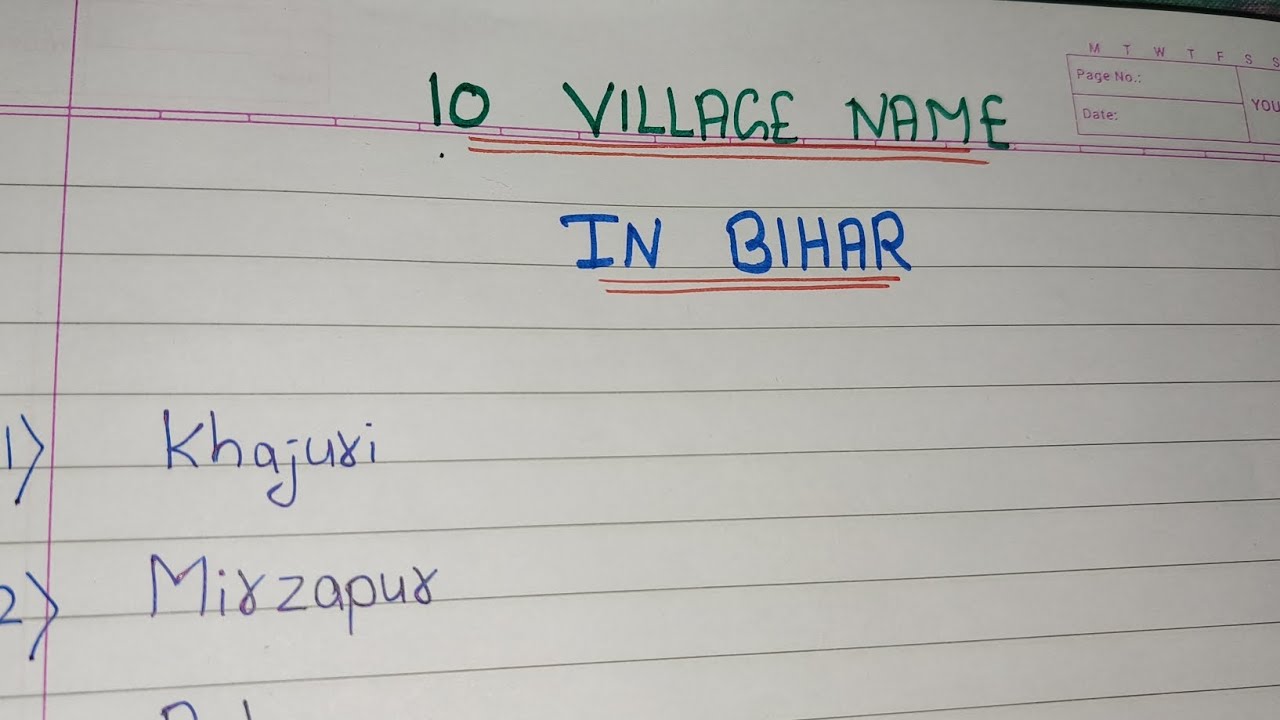 M T W T F S S
Page No.:
Date:
YOU
10 VILLAGE NAME
IN BIHAR
1) Khajuri
2) Mirzapur